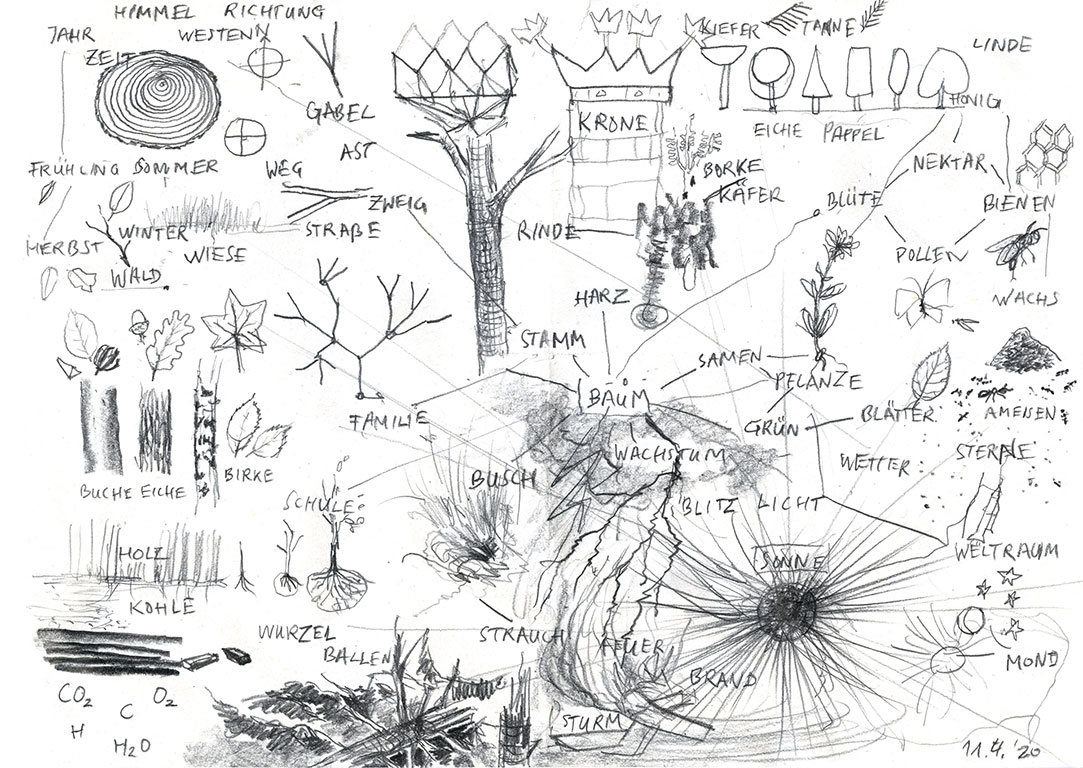 HIMMEL RICHTUNG
JAHR
WESTEN N
ZEIT
GABEL
AST
FRÜHLING SOMMER
WEG
ZWEIG
STRAßE
HERBST
WINTER
WIESE
WALD
KRONE
BORKE
KÄFER
RINDE
HARZ
KIEFER
TANNE
LINDE
HONIG
EICHE PAPPEL
NEKTAR
BLÜTE
BIENEN
POLLEN
WACHS
STAMM
SAMEN
PFLANZE
BAUM
FAMILIE
GRÜN
BLÄTTER
AMEISEN
WACHSTUM
WETTER
STERNE
BUSCH
BUCHE EICHE
BIRKE
SCHULE
BLITZ LICHT
HOLZ
SONNE
WELTRAUM
KOHLE
WURZEL
BALLEN
STRAUCH
FEUER
MOND
BRAND
STURM
CO2
O2
C
H
H2O
11.4.'20